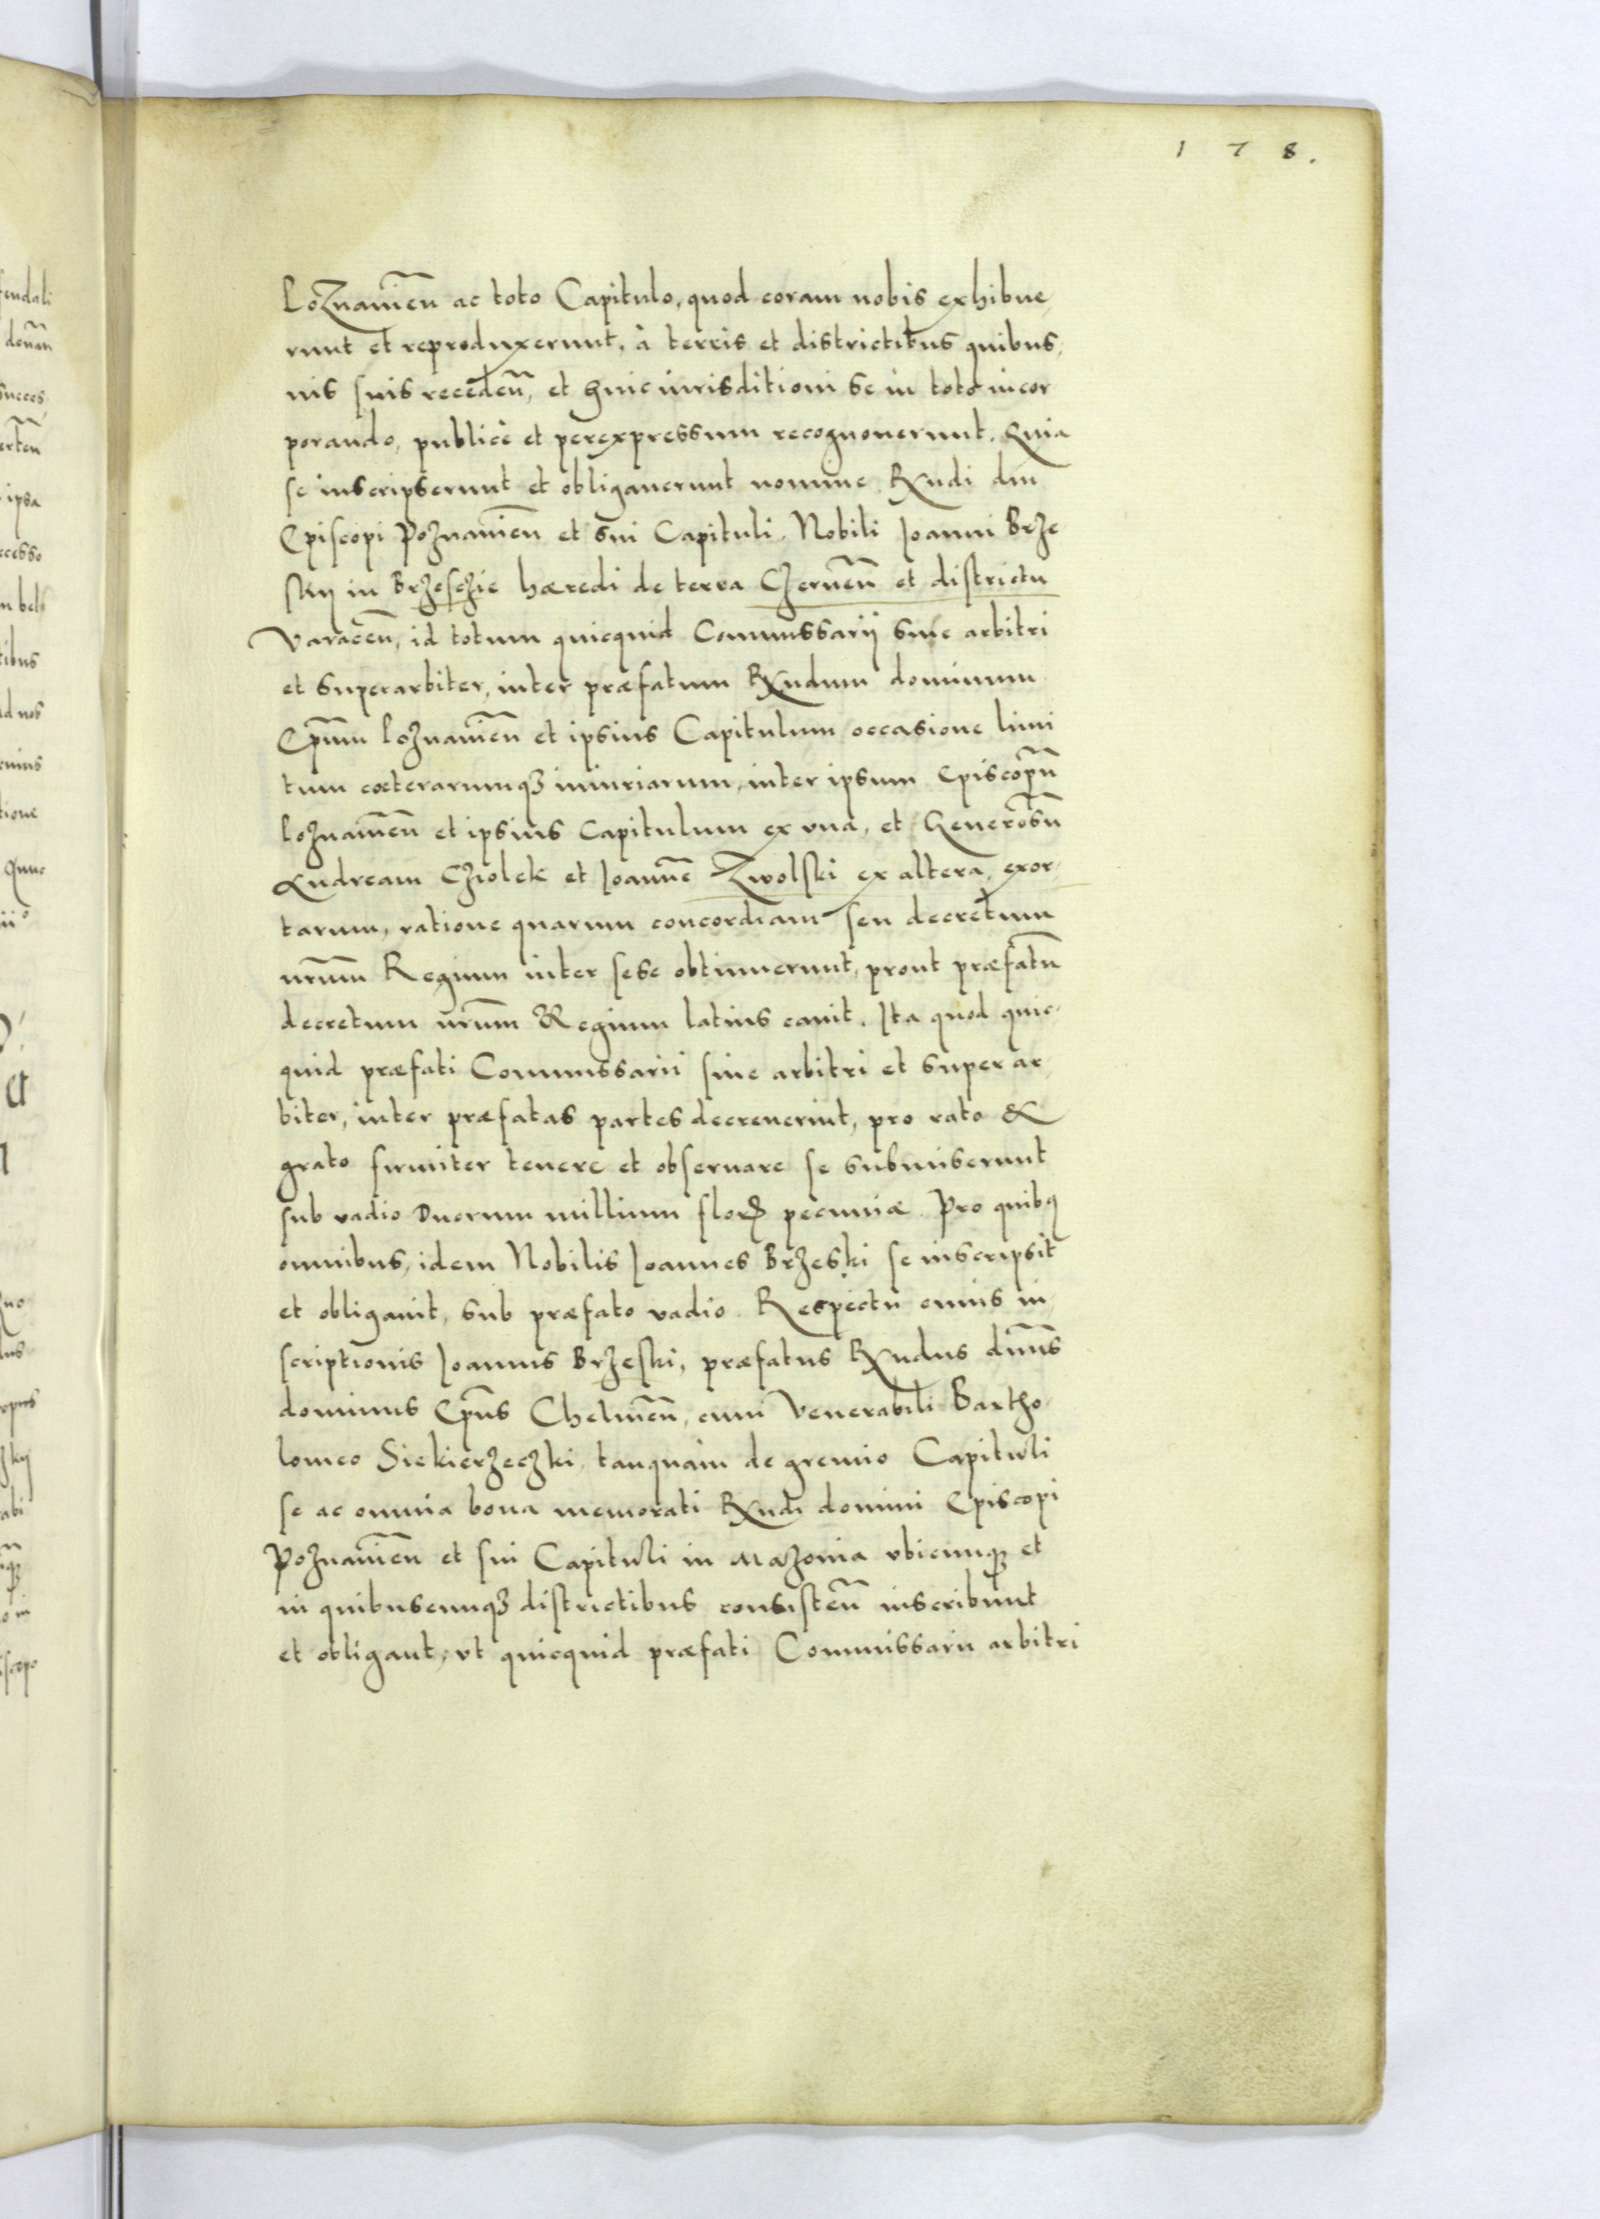 178.
Poznanień ac toto Capitulo, quod coram nobis exhibue,
runt et reproduxerunt, à terris et districtibus quibus,
nis suis recedeñ, et huic iurisditioni se in toto incor
porando, publicè et perexpressum recognouerunt. Quia
se inscripserunt et obligauerunt nomine Rñdi dñi
Episcopi Poznanień et sui Capituli, Nobili Joanni Brze
skij in Brzesczie hæredi de terra Czerneñ et districtu
Varaceñ, id totum quicquid Commissarij siue arbitri
et superarbiter, inter præfatum Rñdum dominum
Epm̃m Poznanień et ipsius Capitulum occasione limi
tum cæterarumq3 iniuriarum, inter ipsum Episcopũ
Poznanień et ipsius Capitulum ex vna, et Generosũ
Andream Cziolek et Joannẽ Zwolski ex altera, exor,
tarum, ratione quarum concordiam seu decretum
nr̃um Regium inter sese obtinuerunt, prout præfatũ
decretum nr̃um Regium latius canit. Ita quod quic,
quid præfati Commissarii siue arbitri et super ar,
biter, inter præfatas partes decreuerint, pro rato &
grato firmiter tenere et obseruare se submiserunt
sub vadio Duorum millium floꝝ pecuniæ. Pro quibꝯ
omnibus, idem Nobilis Joannes Brzeski se inscripsit
et obligauit, sub præfato vadio. Respectu cuius in,
scriptionis Joannis Brzeski, præfatus Rñdus dñus
dominus Ep̃us Chelmeñ, cum Venerabili Bartho,
lomeo Siekierzeczki, tanquam de gremio Capituli
se ac omnia bona memorati Rñdi domini Episcopi
Poznanień et sui Capituli in Mazouia vbicunq3 et
in quibuscunq3 districtibus consisteñ inscribunt
et obligant, vt quicquid præfati Commissarii arbitri